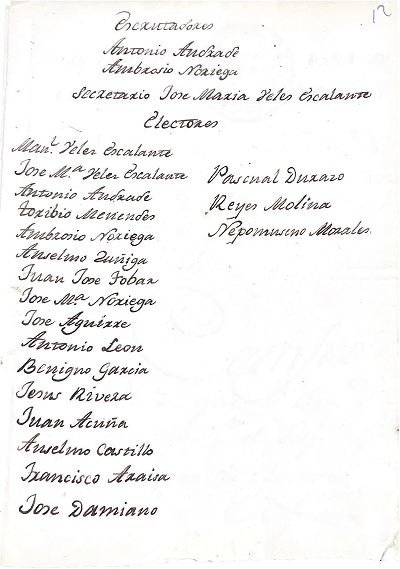 12
Escrutadores
Antonio Andrade
Ambrosio Noriega
Secretario Jose Maria Veles Escalante
Electores
Man.l Veles Escalante
Jose M.a Veles Escalante
Antonio Andrade
Toribio Menendes
Ambrosio Noriega
Anselmo Zuñiga
Juan Jose Tobar
Jose M.a Noriega
Jose Aguirre
Antonio Leon
Benigno Garcia
Jesus Rivera
Juan Acuña
Anselmo Castillo
Francisco Araisa
Jose Damiano
Pascual Durazo
Reyes Molina
Nepomuseno Morales.